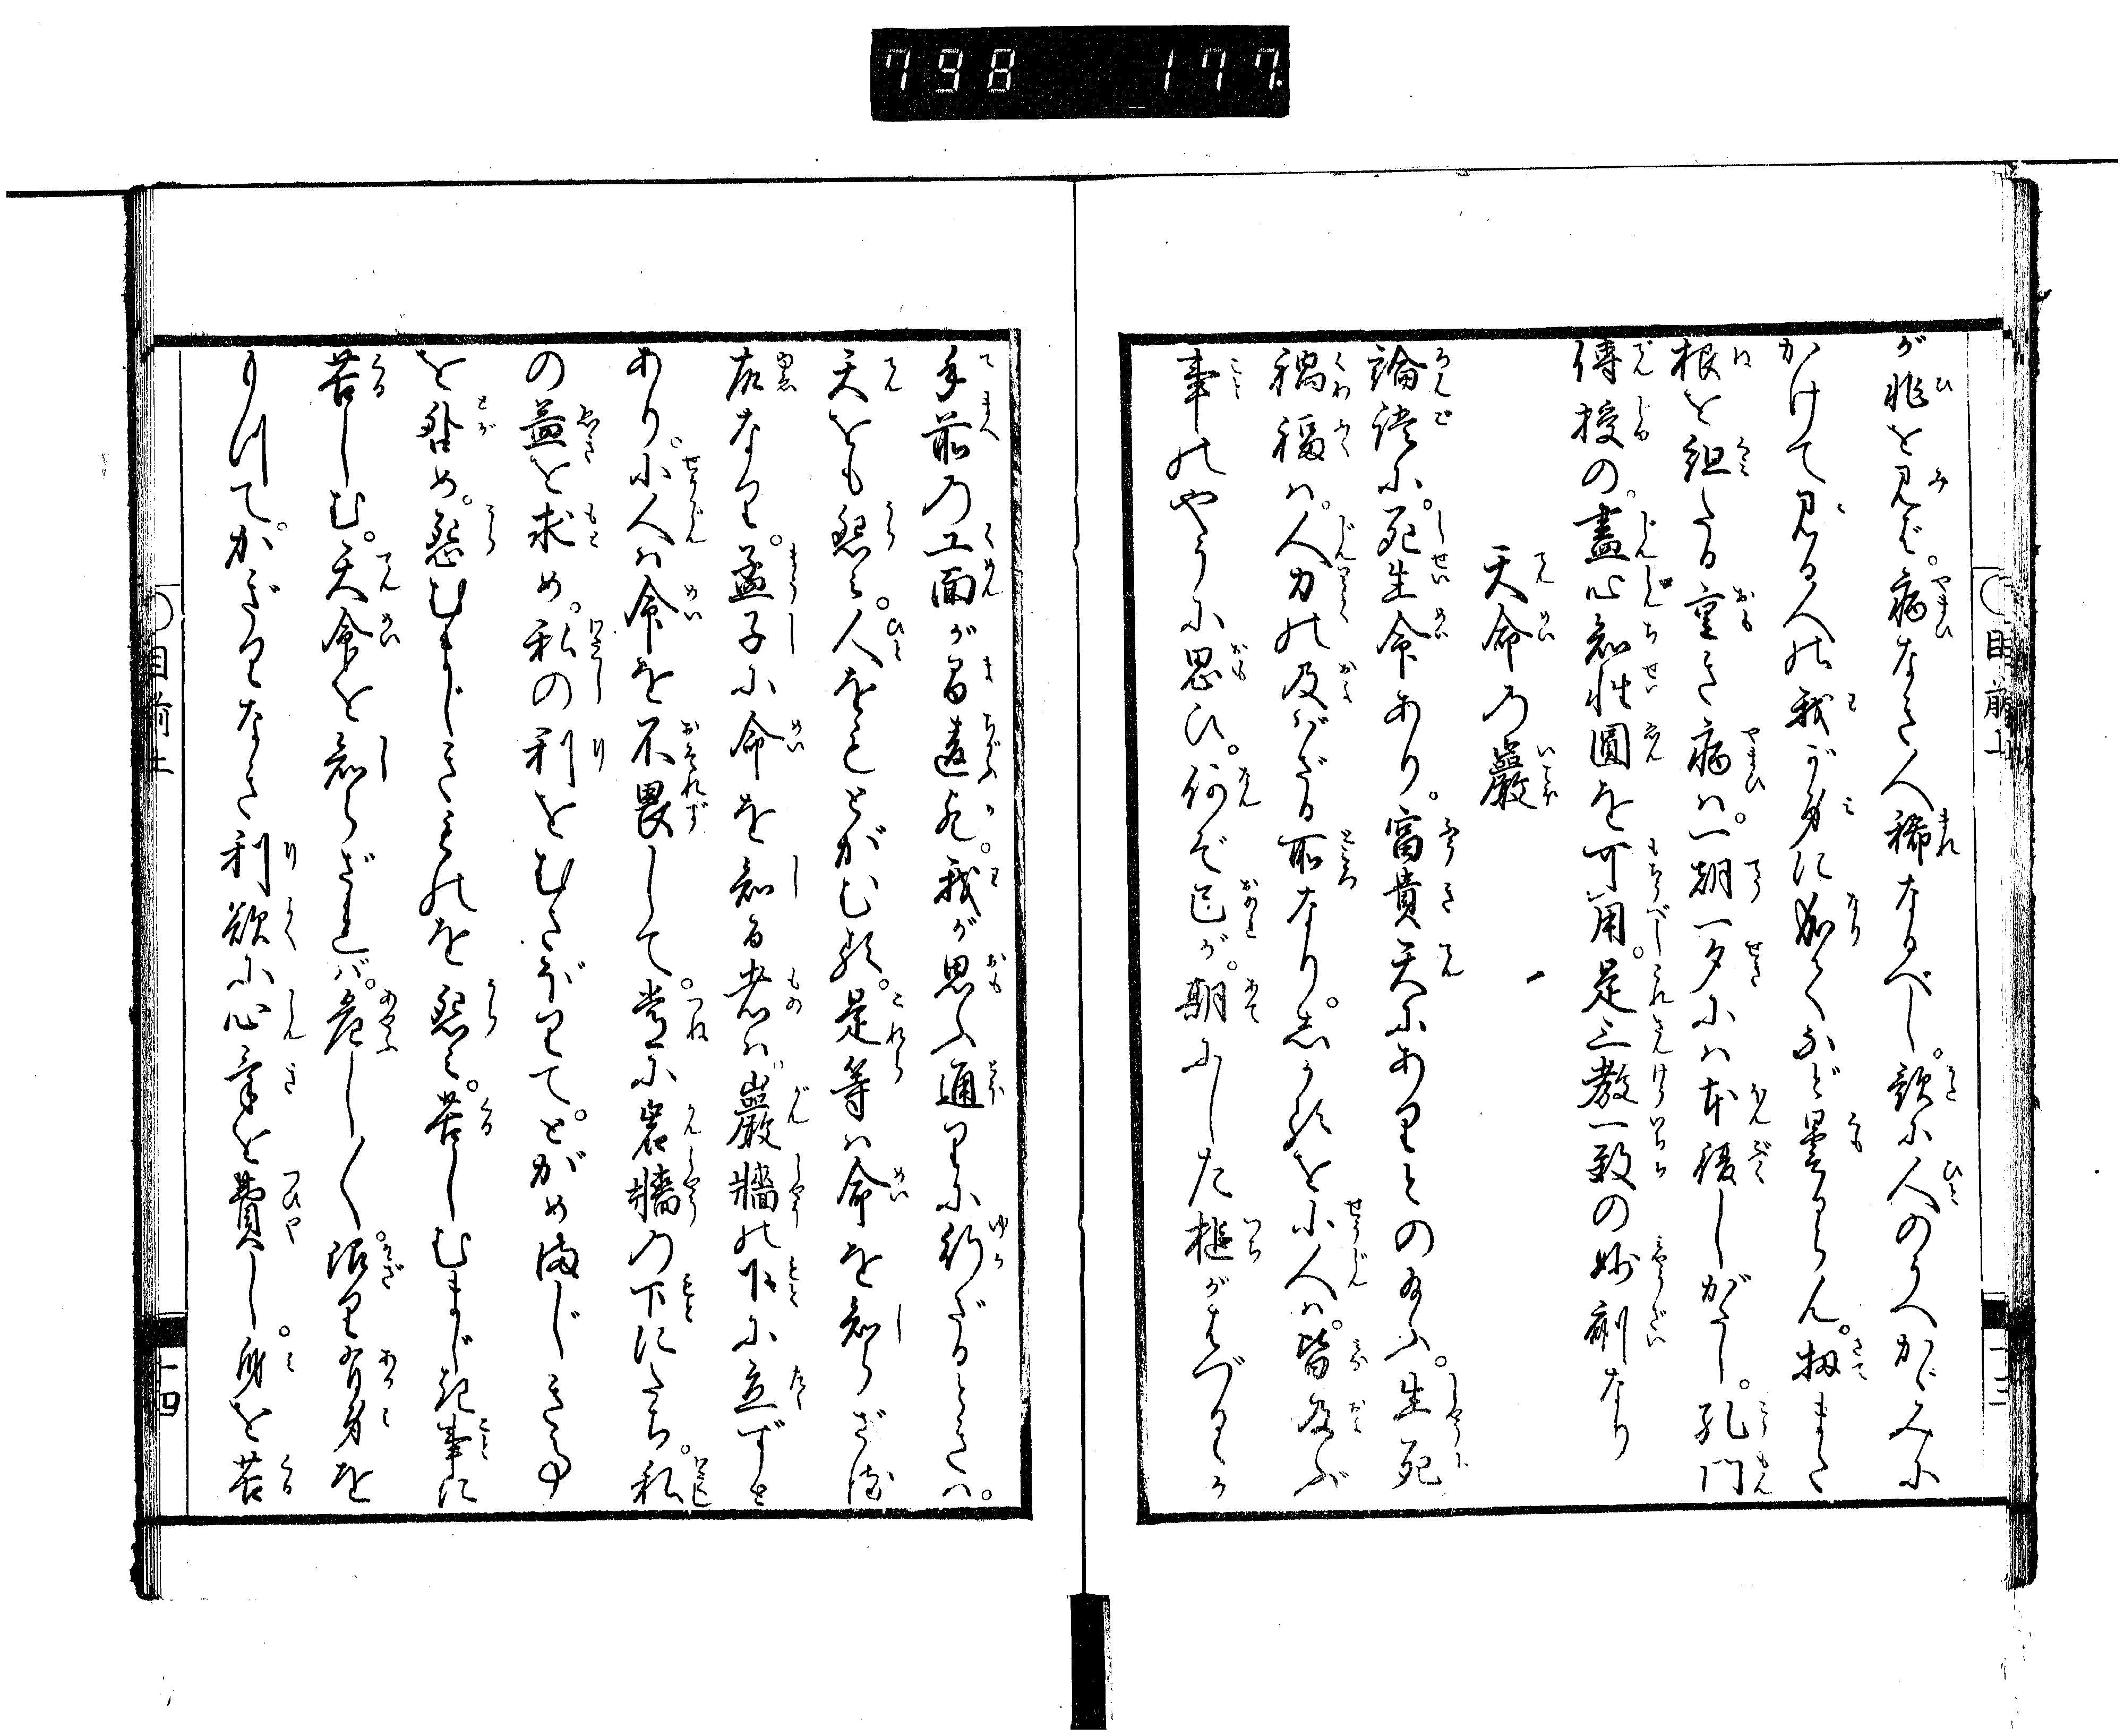 798 177
が非を見ば。病なき人稀なるべし。故に人のうへかゞみに
かけて見る人の我が身に成てなど曇るらん。扨また
根を組たる重き病は。一朝一夕には本復しがたし。孔門
傳授の。盡心知性圓を可用。是三教一致の妙剤なり
天命の巖
論語に。死生命あり。富貴天にありとのたまふ。生死
禍福は。人力の及ばざる所なり。しかるを小人は。皆及ぶ
事のやうに思ひ。何ぞ己が。期にした槌がはづるゝか
手前の工面が間違ふか。我が思ふ通りに行ざるときは。
天をも怨み。人をもとがむる。是等は命を知らざる
故なり。孟子に命を知る者は。巖牆の下に立ずと
あり。小人は命を不畏して。常に岩牆の下にたち。私
の益を求め。私の利をむさぼりて。とがめまじき事
を咎め。怨むまじきものを怨み。苦しむまじき事に
苦しむ。天命を知らざれば。危し〳〵。限りある身を
もつて。かぎりなき利欲に心気を費し。身を苦
目前上
十三
目前上
十四